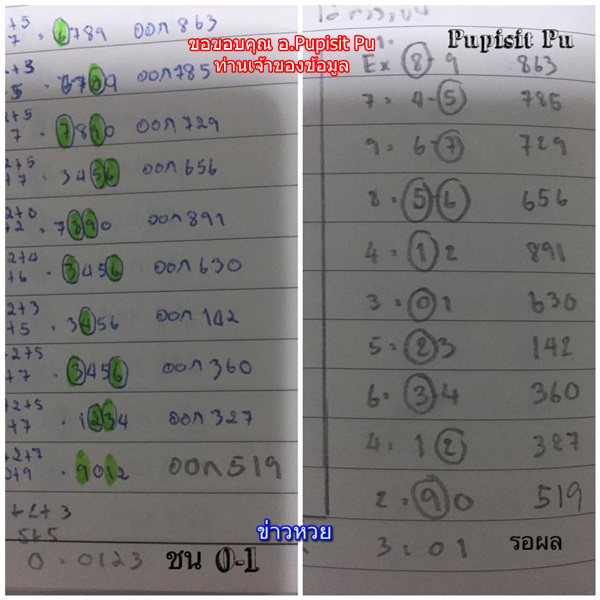 +5
7 = 6789 ออก 863
ขอขอบคุณ อ.Pupisit Pu
ท่านเจ้าของข้อมูล
+3
5 - 6709 ออก 785
+5
7 - 7890 ออก 729
2+5
+7 - 3456 ออก 656
2+0
+2 - 7890 ออก 891
2+4
+6 - 3456 ออก 630
2+3
+5 - 3456 ออก 142
+2+5
+7 - 3456 ออก 360
+2+5
+7 - 1234 ออก 327
+2+7
0+9 - 9012 ออก 519
+2+3
5+5
0 = 0123 ชน 0-1
ข่าวหวย
Pupisit Pu
Ex 8-9 863
7 = 4-5 785
9 = 6-7 729
8 = 5-6 656
4 = 1 2 891
3 = 0 1 630
5 = 2 3 142
6 = 3 4 360
4 = 1 2 327
2 = 9 0 519
3 = 0 1 รอผล